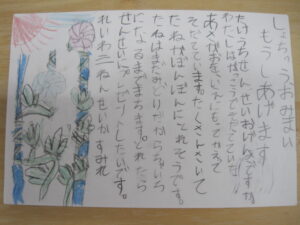 しょちゅうおみまい
もうしあげます
たけうちせんせいおげんきですか
わたしはがっこうでそだてていた
あさがおをいえにもってかえって
そだてています。たくさんさいて
たねがぽんぽんにとれそうです。
たねはまだみどりだからちゃいろ
になるまでまちます。とれたら
せんせいにプレゼントしたいです。
れいわ三ねんせいかすみれ